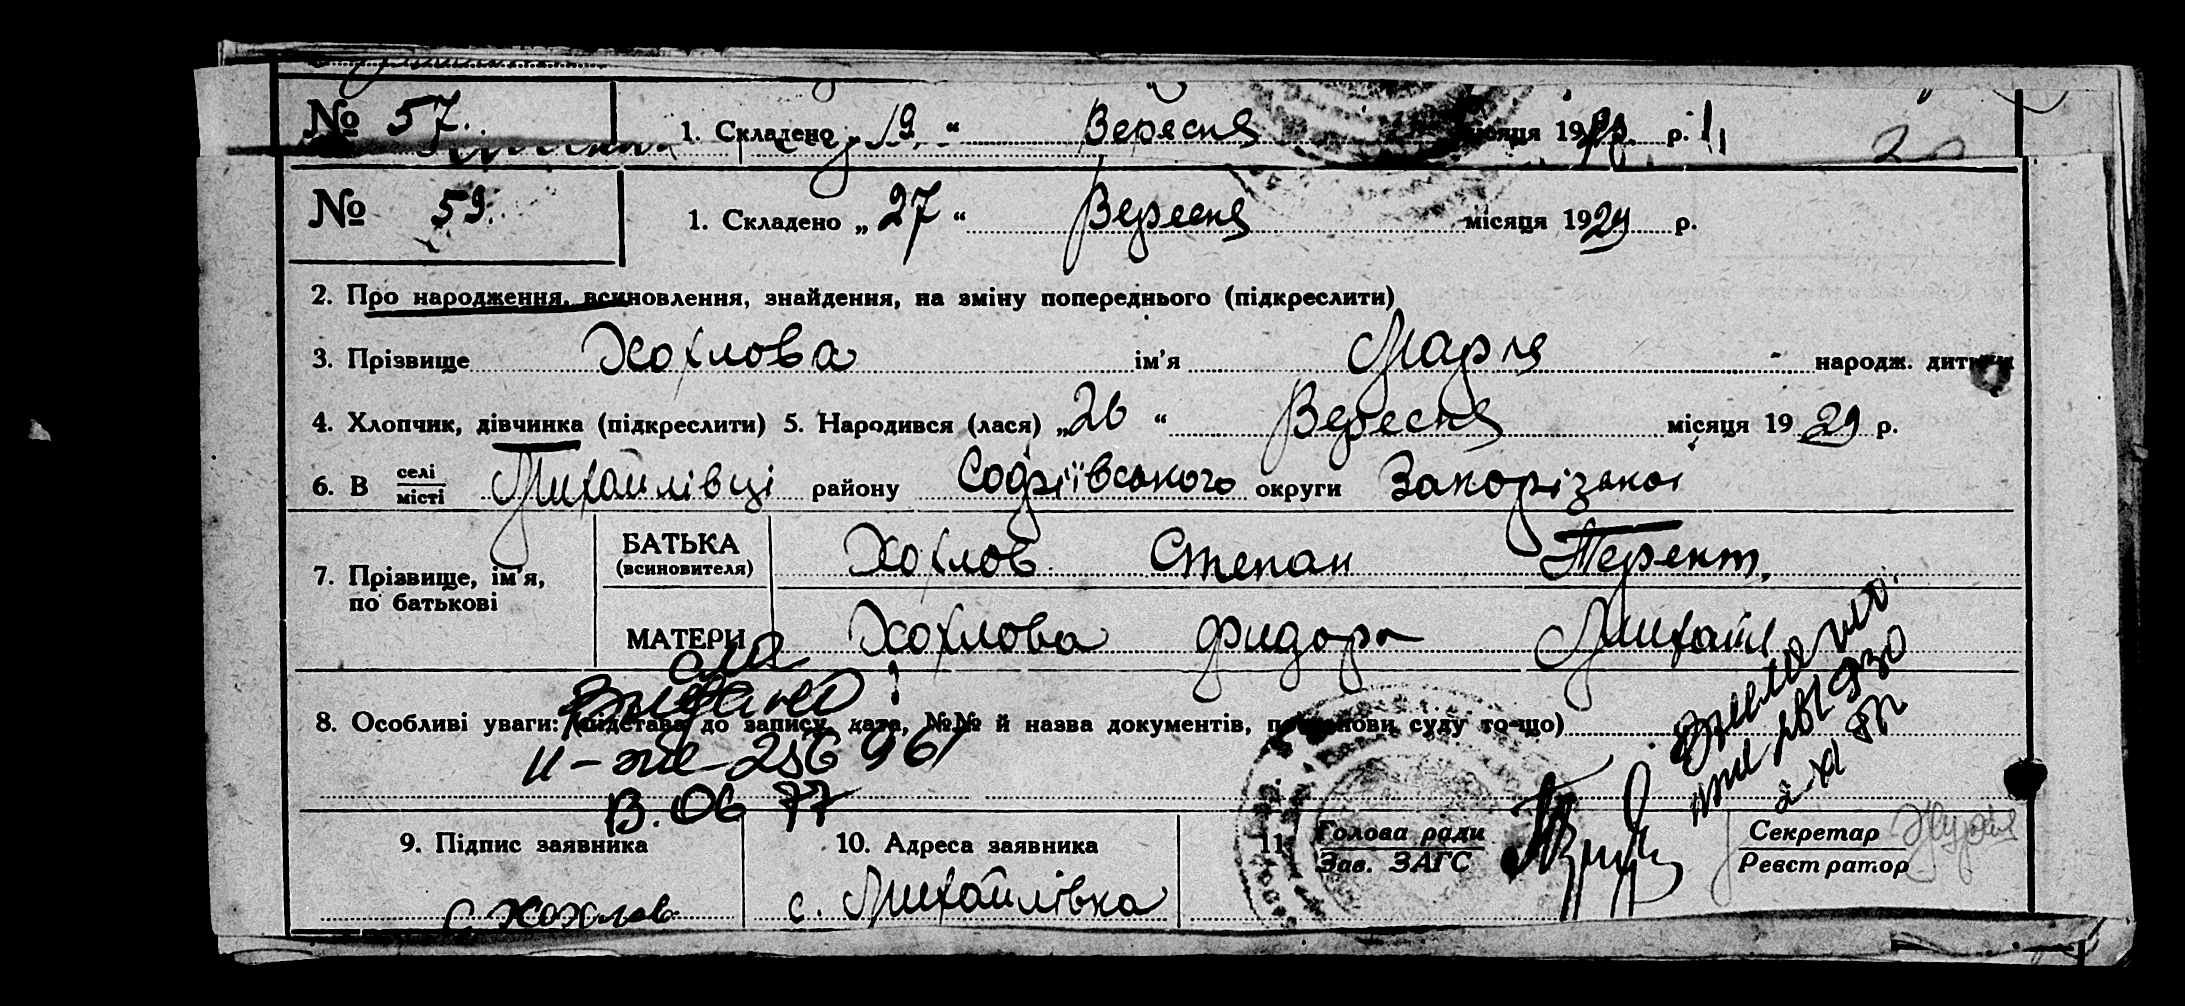 № 57. 1. Складено „19“ Вересня місяця 1929 р.
№ 59. 1. Складено „27“ Вересня місяця 1929 р.
2. Про народження, всиновлення, знайдення, на зміну попереднього (підкреслити)
3. Прізвище Хохлова ім'я Марія народж. дитини
4. Хлопчик, дівчинка (підкреслити) 5. Народився (лася) „26“ Вересня місяця 1929 р.
6. В селі місті Михайлівці району Софіївського округи Запорізької
7. Прізвище, ім'я, по батькові
БАТЬКА (всиновителя) Хохлов Степан Терент.
МАТЕРИ Хохлова Фидора Михайл
8. Особливі уваги: (підстава до запису, дата, №№ й назва документів, постанови суду то-що)
Видано
II-
256961
06 77
2-XI
9. Підпис заявника 10. Адреса заявника 11. Голова ради Зав. ЗАГС Секретар Реєстратор
С Хохлов с. Михайлівка